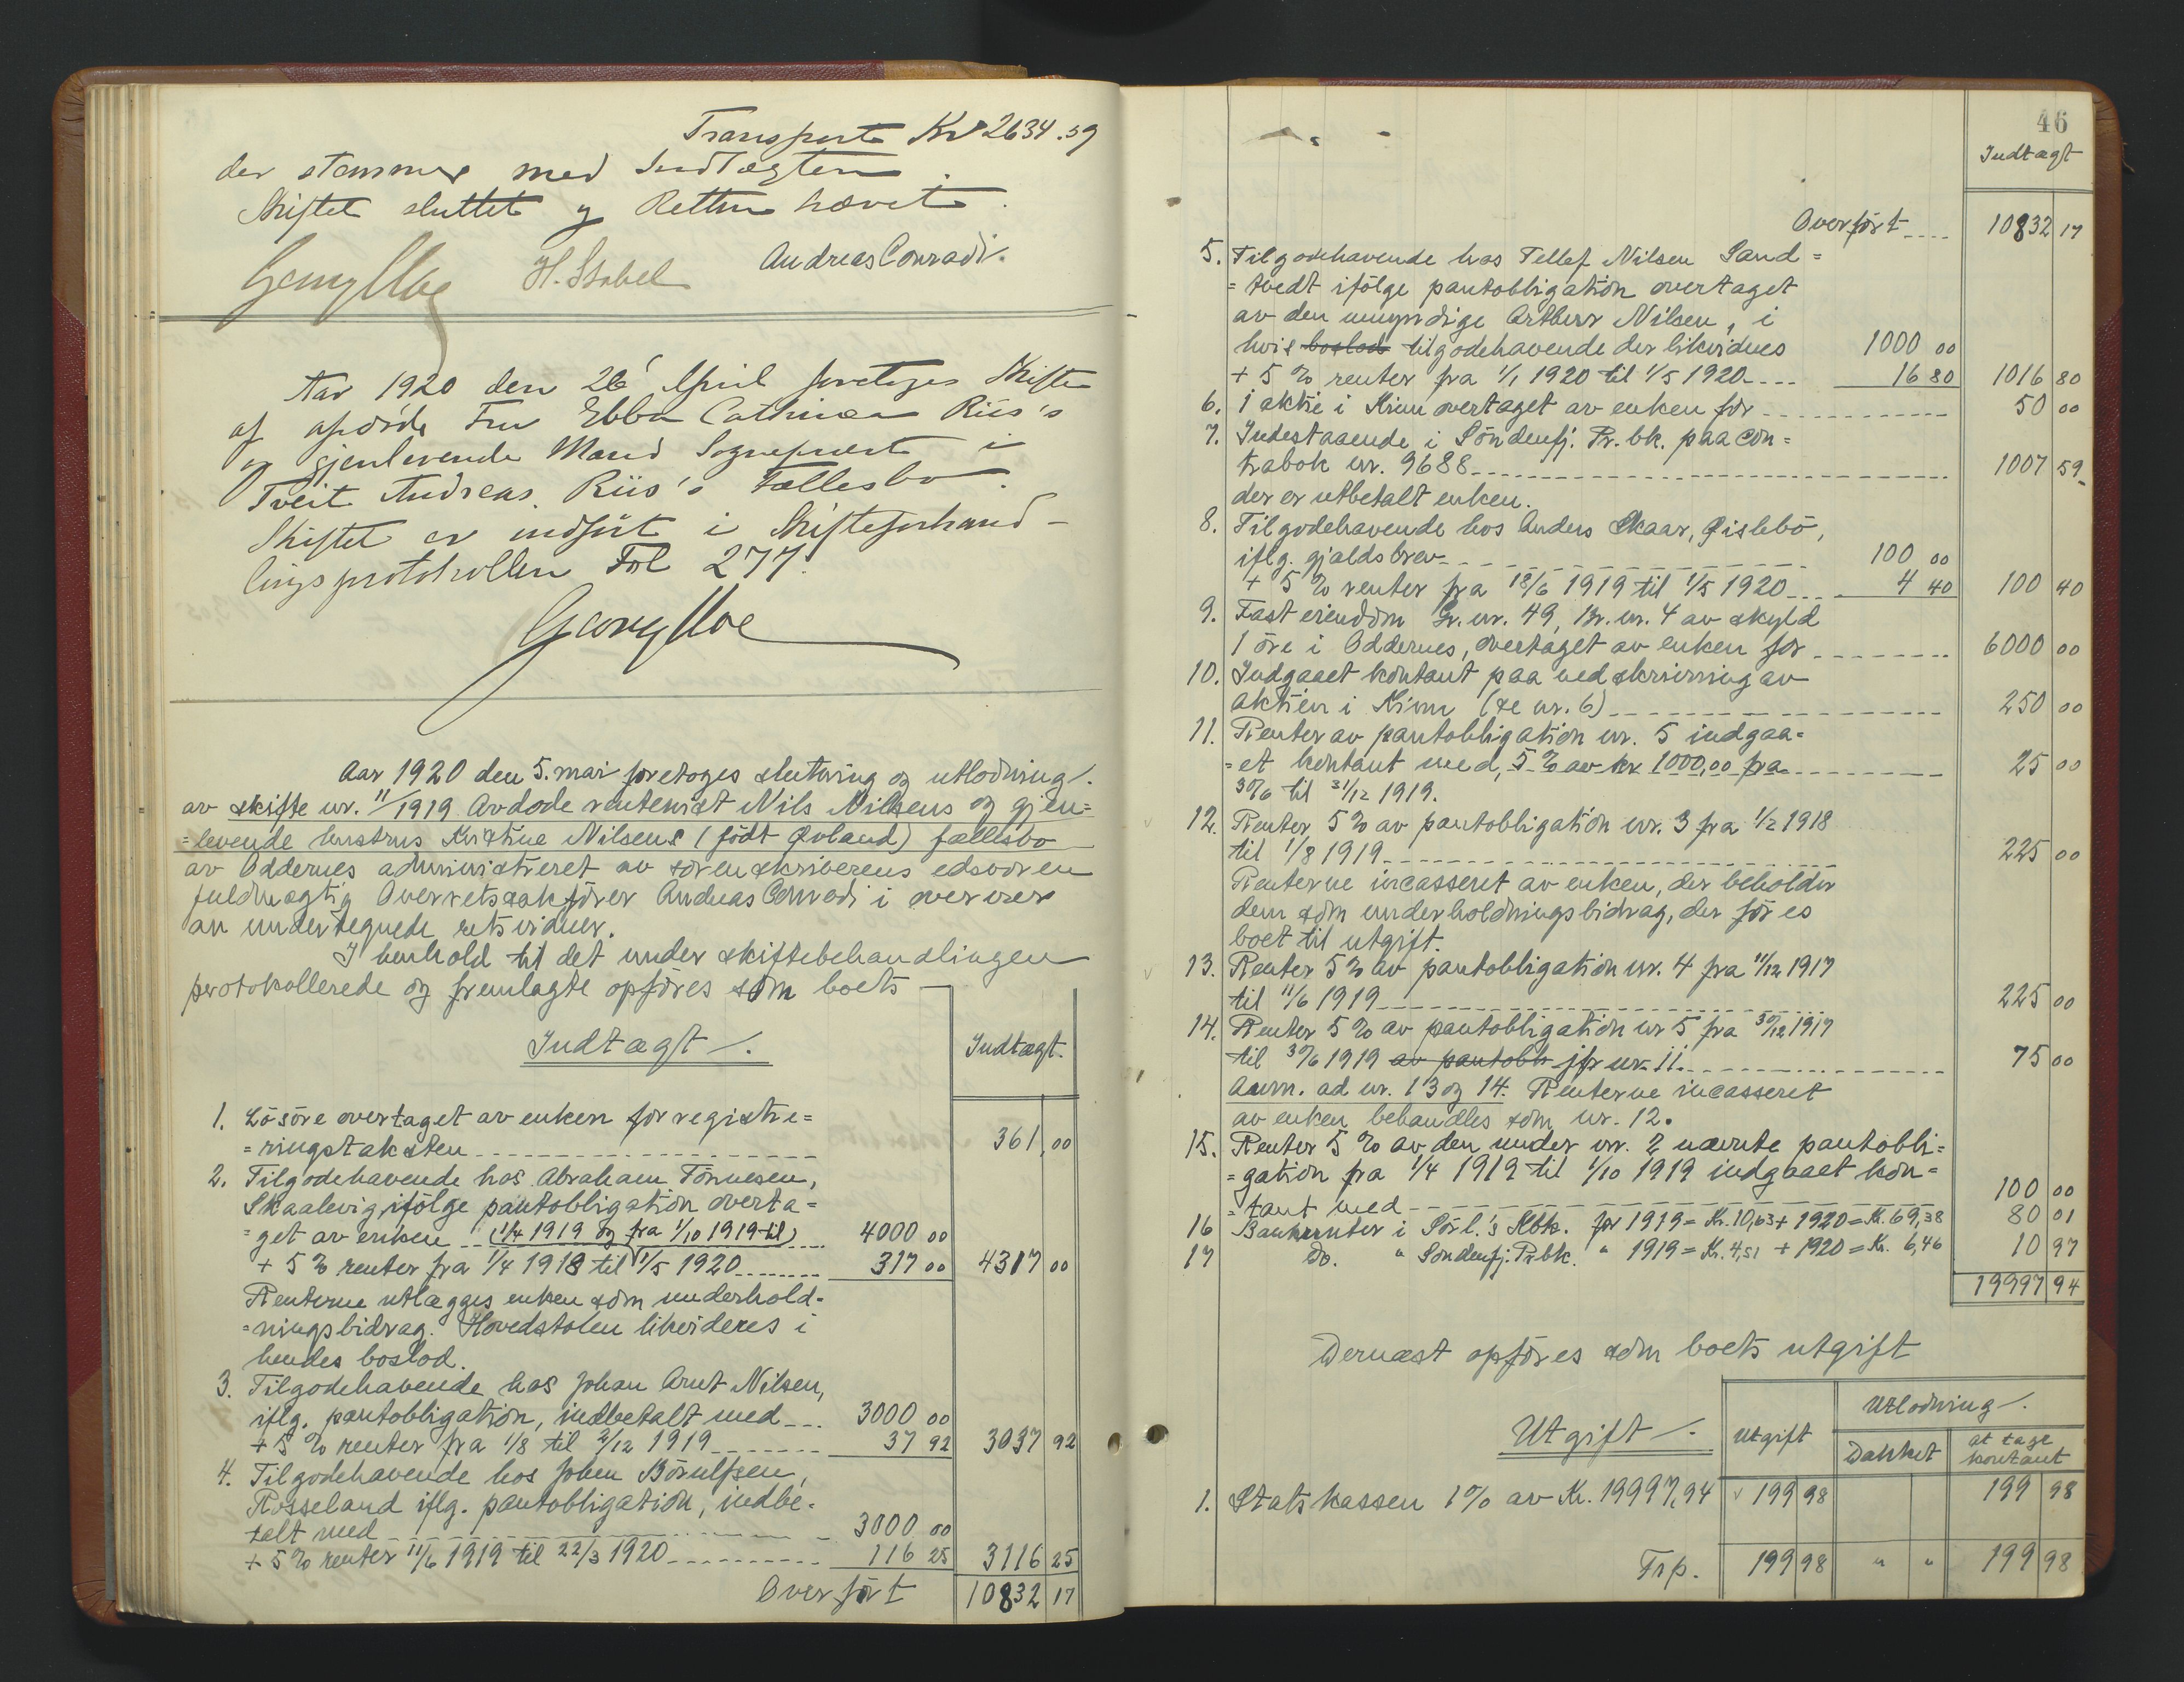 Transport Kr 2634.59
der stemmer med Indtægten.
Skiftet sluttet og Retten hævet.
H. Stabel Andreas Conradi.
Aar 1920 den 26 April foretages Skifte
af afdöde Fru Ebba Cathinca Riis's
og gjenlevende Mand Sogneprest i
Tveit Andreas Riis's Fællesbo.
Skiftet er indfört i Skifteforhand-
lingsprotokollen Fol 277.
Aar 1920 den 5. mai foretoges slutning og utlodning
av skifte nr. 11/1919 Avdöde rentenist Nils Nilsens og gjen=
=levende hustrus Kristine Nilsens (född Øvland) fællesbo
av Oddernes administreret av sorenskriverens edsvoren
fuldmægtig Overretssakförer Andreas Conradi i overvær
av undertegnede retsvidner.
I henhold til det under skiftebehandlingen
protokollerede og fremlagte opföres som boets
Indtægt
Indtægt.
1. Lösöre overtaget av enken for registre=
=ringstaksten 361,00
2. Tilgodehavende hos Abraham Tönnesen,
Skaalevig, ifölge pantobligation overta=
=get av enken (1/4 1919 og fra 1/10 1919 til) 4000 00
+ 5% renter fra 1/4 1918 til 1/5 1920 317 00 4317 00
Renterne utlægges enken som underhold-
=ningsbidrag. Hovedstolen likvideres i
hendes boslod.
3. Tilgodehavende hos Johan Arnt Nilsen,
iflg. pantobligation, indbetalt med 3000 00
+ 5% renter fra 1/8 til 2/12 1919 37 92 3037 92
4. Tilgodehavende hos John Börulfsen,
Rosseland iflg. pantobligation, indbe-
talt med 3000 00
+ 5% renter 11/6 1919 til 22/3 1920 116 25 3116 25
Overfört 10832 17
46
Indtægt
Overfört 10832 17
5. Tilgodehavende hos Tellef Nilsen Sand=
=tvedt ifölge pantobligation overtaget
av den umyndige Artur Nilsen, i
hvis boslod tilgodehavende der likvideres 1000 00
+ 5% renter fra 1/1 1920 til 1/5 1920 16 80 1016 80
6. 1 aktie i Kinn overtaget av enken for 50 00
7. Indestaaende i Söndenfj. Pr. bk. paa con=
trabok nr. 9688 1007 59
der er utbetalt enken.
8. Tilgodehavende hos Anders Skaar, Øislebö,
iflg. gjældsbrev 100 00
+ 5% renter fra 18/6 1919 til 1/5 1920 4 40 100 40
9. Fast eiendom Gr. nr. 49, Br. nr. 4 av skyld
1 öre i Oddernes, overtaget av enken for 6000 00
10. Indgaaet kontant paa nedskrivning av
aktien i Kinn (se nr. 6) 250 00
11. Renter av pantobligation nr. 5 indgaa=
=et kontant med, 5% av kr 1000,00 fra 25 00
30/6 til 31/12 1919.
12. Renter 5% av pantobligation nr. 3 fra 1/2 1918
til 1/8 1919 225 00
Renterne incasseret av enken, der beholder
dem som underholdningsbidrag, der föres
boet til utgift.
13. Renter 5% av pantobligation nr. 4 fra 11/12 1917
til 11/6 1919 225 00
14. Renter 5% av pantobligation nr 5 fra 30/12 1917
til 30/6 1919 av pantobl. jfr nr. 11. 75 00
Anm. ad nr. 13 og 14. Renterne incasseret
av enken behandles som nr. 12.
15. Renter 5% av den under nr. 2 nævnte pantobli=
=gation fra 1/4 1919 til 1/10 1919 indgaaet kon=
=tant med 100 00
16 Bankrenter i Sörl.'s Kbk. for 1919 = Kr. 10,63 + 1920 = Kr. 69,38 80 01
17 Do. " Söndenfj. Prbk. " 1919 = Kr. 4,51 + 1920 = Kr. 6,46 10 97
19997 94
Dernæst opföres som boets utgift
Utgift Utgift Utlodning
Dækket at tage kontant
1. Statskassen 1% av Kr. 19997,94 199 98 199 98
Trp. 199 98 " " 199 98